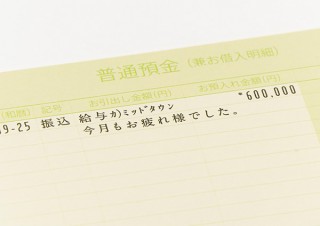 普通預金(兼お借入明細)
(和暦) 記号 お引出し金額(円) お預入れ金額(円)
9-25 振込 給与 カ)ミッドタウン *600,000
今月もお疲れ様でした。